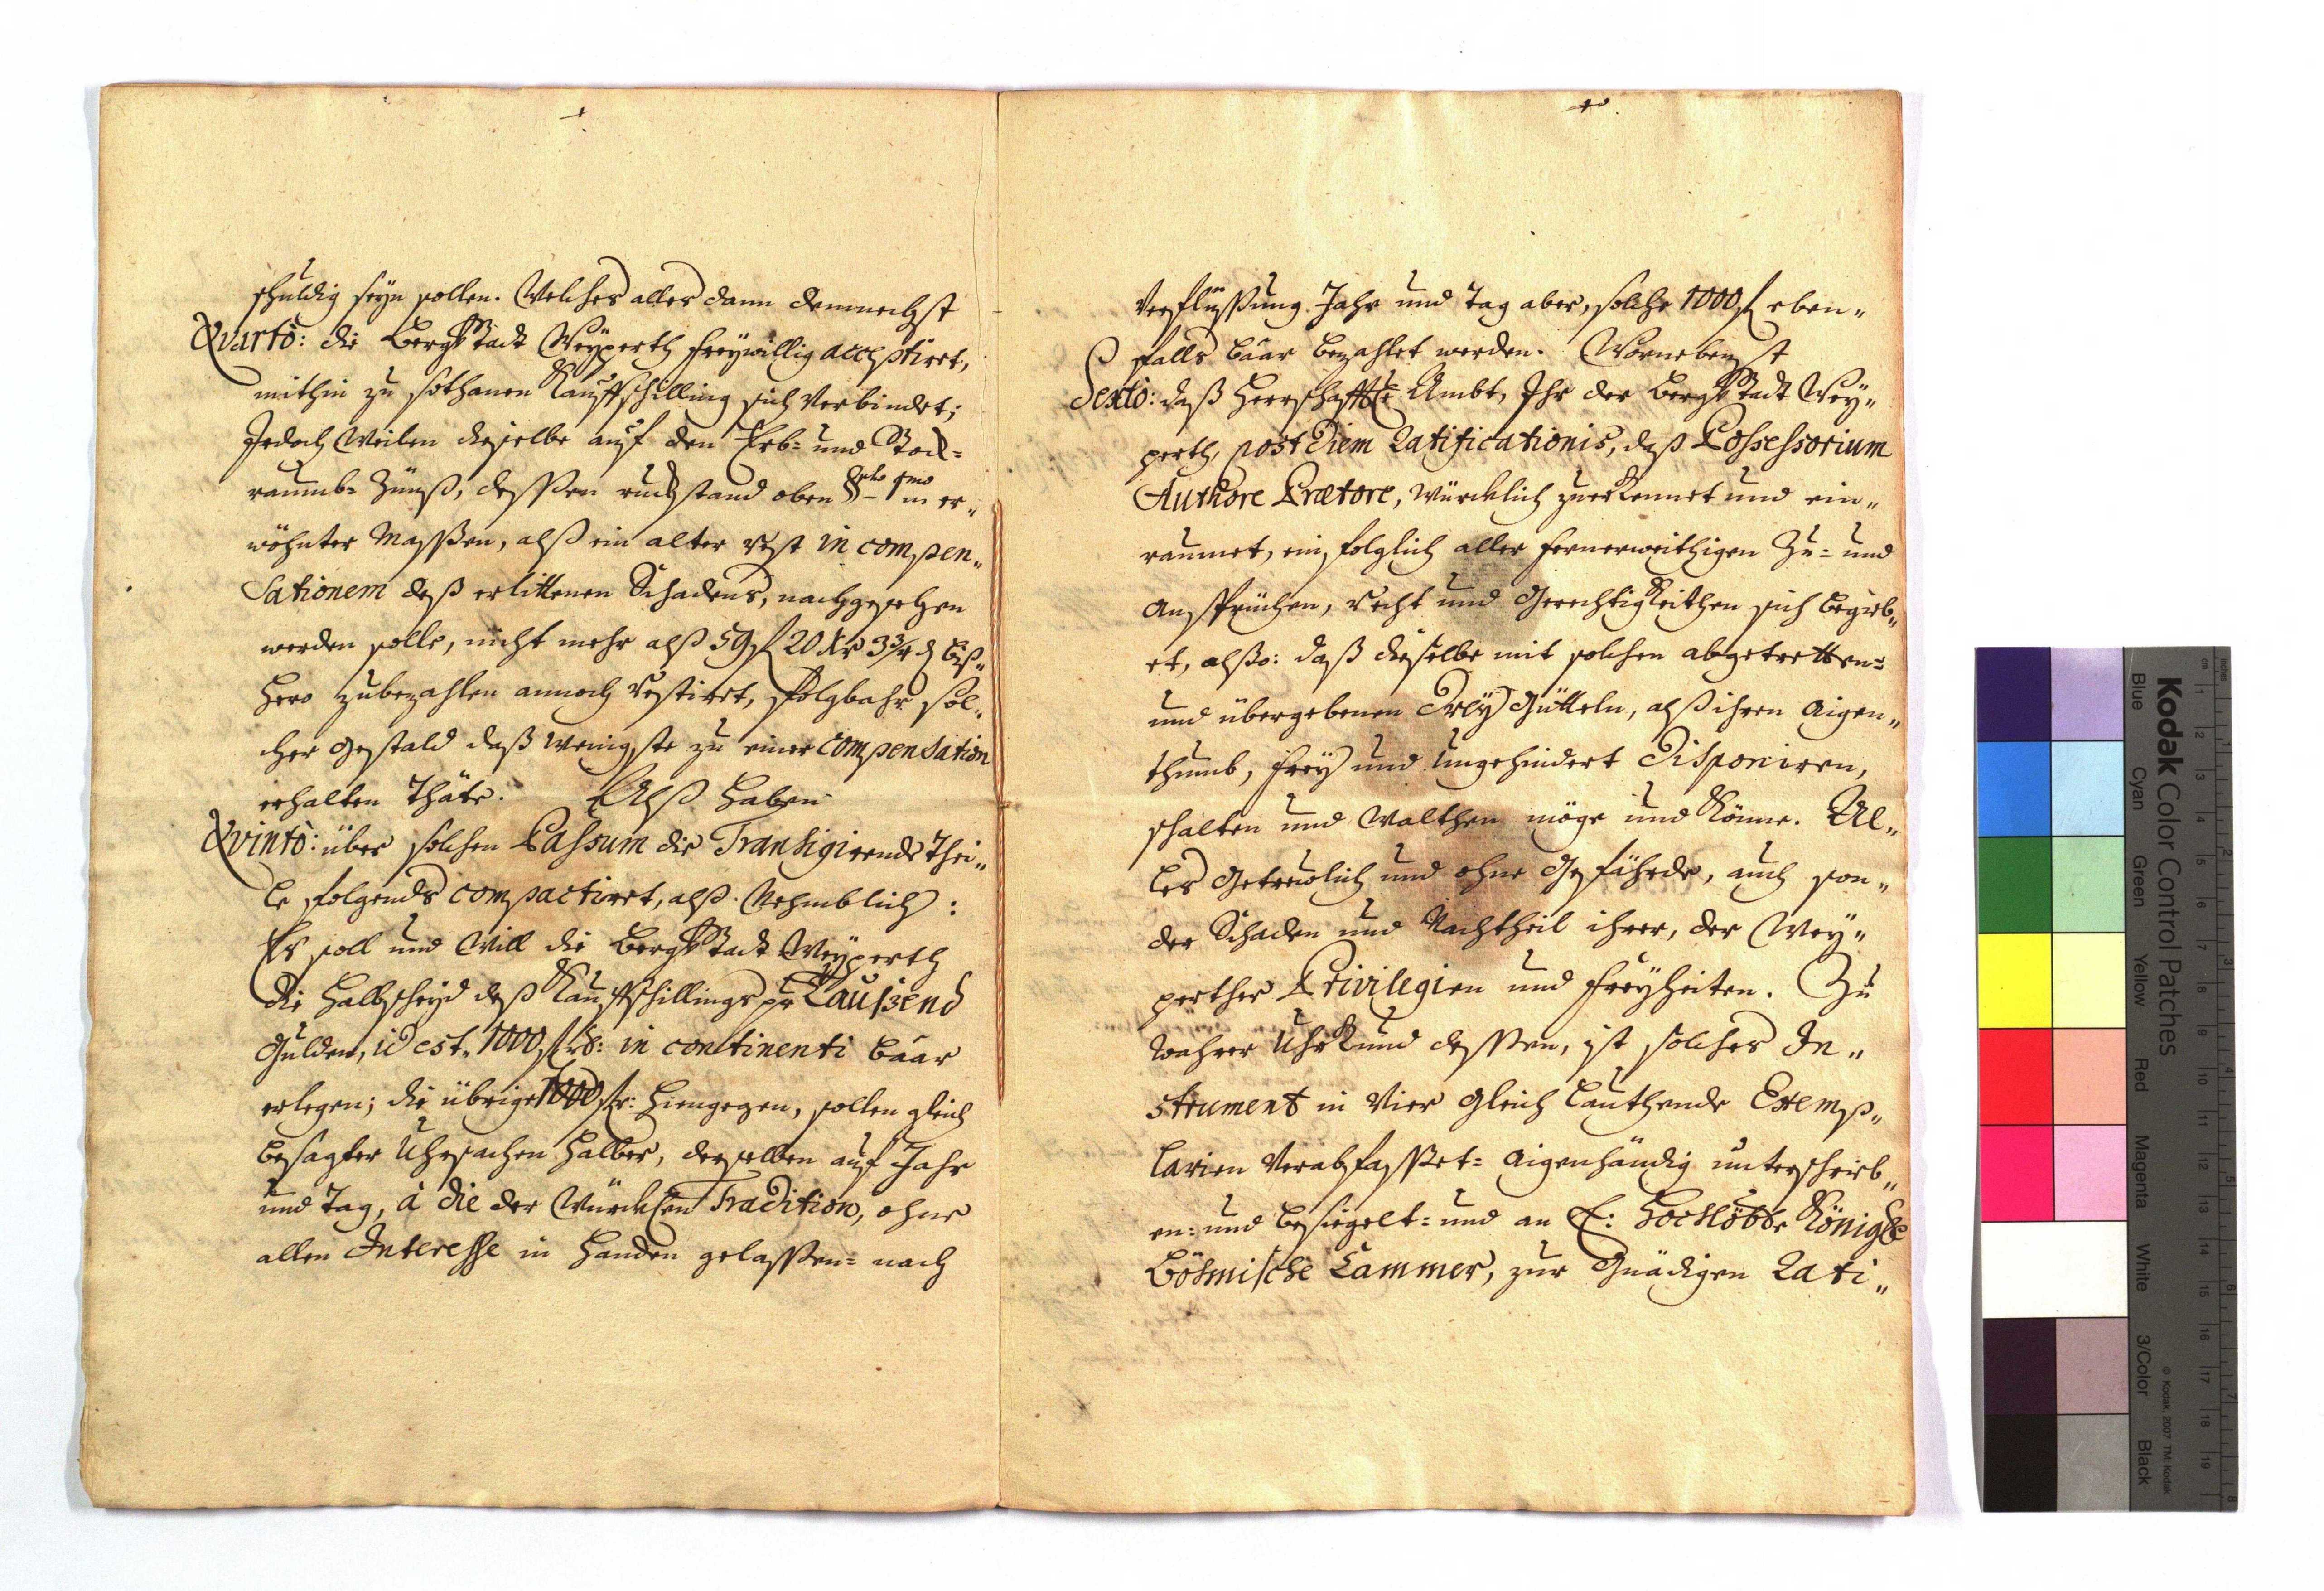 schuldig seyn sollen. Welches alles dann demnechst
Qvartò: die BergStadt Weyperth freywillig acceptiret,
mithin zu sothanen Kauffschilling sich verbindet;
Jedoch weilen dieselbe auf den Erb- und Stock=
raumb- Zünß, dessen ruckstand oben §pho 1mo in er„
wöhnter Massen, alß ein alter rest in compen„
sationem deß erlittenen Schadens, nachgesehen
werden solle, nicht mehr alß 59 f 20 kr 3¾ d biß„
hero zubezahlen annoch restiret, folgbahr sol„
cher gestald daß wenigste zu einer compensation
erhalten thäte. Alß haben
Qvintò: über solchen Passum die Transigirende Thei„
le folgends compactiret, alß. Nehmblich:
Es soll und will die BergStadt Weyperth
die Halbscheyd deß Kauffschillings pr Taußend
Gulden, id est„ 1000 f rh: in continenti baar
erlegen; die übrige 1000 f r: hingegen, sollen gleich
besagter Uhrsachen halber, derselben auf Jahr
und Tag, à die der würcklen Tradition, ohne
allen Interesse in Handen gelassen= nach
Verflüssung Jahr und Tag aber, solche 1000 f eben„
falls baar bezahlet werden. Wornebenst
Sextò: daß Herrschafftle Ambt, Ihr der BergStadt Wey„
perth, post diem Ratificationis, daß Possessorium
Authore Prætore, würcklich zuerkennet und ein„
raumet, ein folglich aller fernerweithigen Zu= und
Ansprüchen, recht und Gerechtigkeithen sich begieb„
et, alßo: daß dieselbe mit solchen abgetretten=
und übergebenen Drey Gütteln, alß ihren aigen„
thumb, frey und ungehindert Disponiren,
schalten und walthen möge und könne. Al„
les getreulich und ohne Gefährde, auch son„
der Schaden und Nachtheil ihrer, der Wey„
perther Privilegien und freyheiten. Zu
wahrer Uhrkund dessen, ist solches In„
strument in Vier gleich lauthende Exemp„
larien verabfasset= aigenhändig unterschrieb„
en= und besiegelt= und an E: Hochlöbe Königle
Böhmische Cammer, zur Gnädigen Rati„
Kodak Color Control Patches
Blue Cyan Green Yellow Red Magenta White 3/Color Black
© Kodak, 2007 TM: Kodak